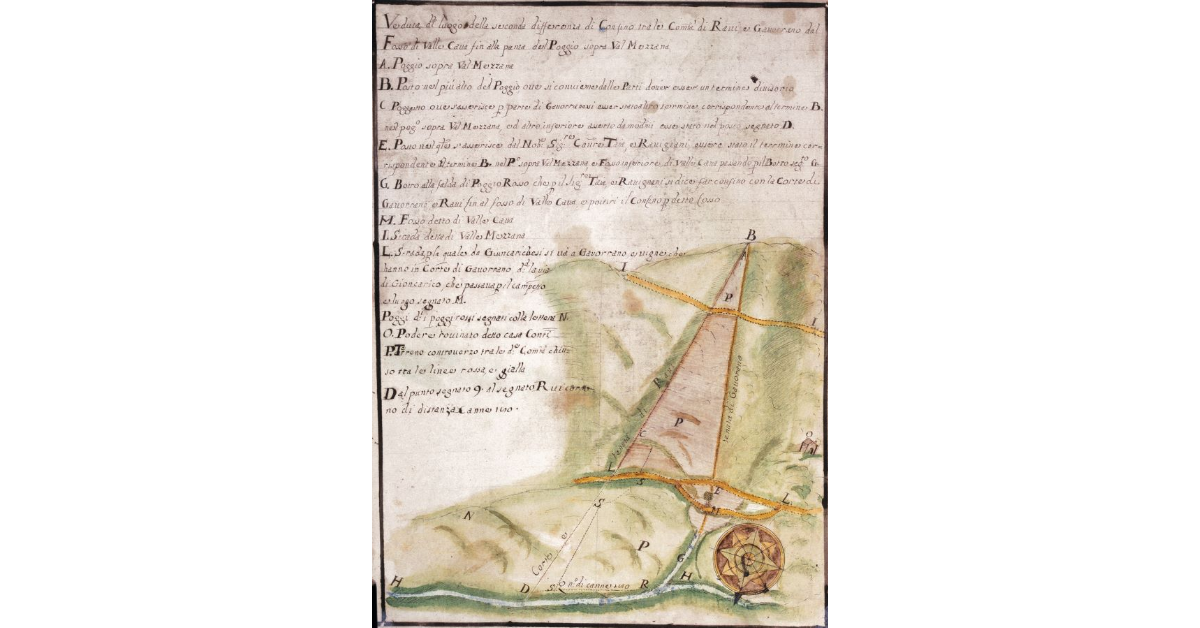 Veduta d'l luogo della seconda differenza di Confino tra le Comtà di Ravi, e Gavorrano dal
Fosso di Valle Cava fin alla punta del Poggio sopra Val Mezzana
A. Poggio sopra Val Mezzana
B. Posto nel più alto del Poggio ove si conviene dalle Parti dover esser un termine divisorio
C Poggetto ove s'asserisce p parte di Gavorrano esser stato altro termine, corrispondente al termine B.
nel pogo sopra Val Mezzana, ed altro inferiore asserto da medmi esser stato nel posto segnato D
E. Posto nel qle s'asserisce dal Nobi Sigri e Ravignani, essere stato il termine cor=
rispondente al termine B. nel Po sopra Val Mezzana e Fosso inferiore di Valle Cava passando pil Botro sego G.
G. Botro alla falda di Poggio Rosso che pil Sigre e Ravignani si dice far confino con la Corte di
Gavorrano e Ravi fin al fosso di Valle Cava, e poi il Confino p detto fosso
M. Fosso detto di Valle Cava
I. Strada detta di Valle Mezzana
L. Strada p la quale da Giuncarichesi si va a Gavorrano, e vigne che
hanno in Corte di Gavorrano, da la via
di Gioncarico, che passava pil campeno
e luogo segnato M.
Poggi di i poggi rossi segnati colla lettera N.
O. Podere rovinato detto casa Conti
P. Terreno controverso tra le de Comtà chiu=
so tra le linee rossa, e gialla
Dal punto segnato 9. al segnato R vi corro=
no di distanza Canne 1100.
B
I
P
I
Tenuta di Gavorrano
Tenuta di Ravi
P
C
O
L
S
E
L
M
N
S
Corto
P
G
H
H
D
S
Q
no di canne 1100
R